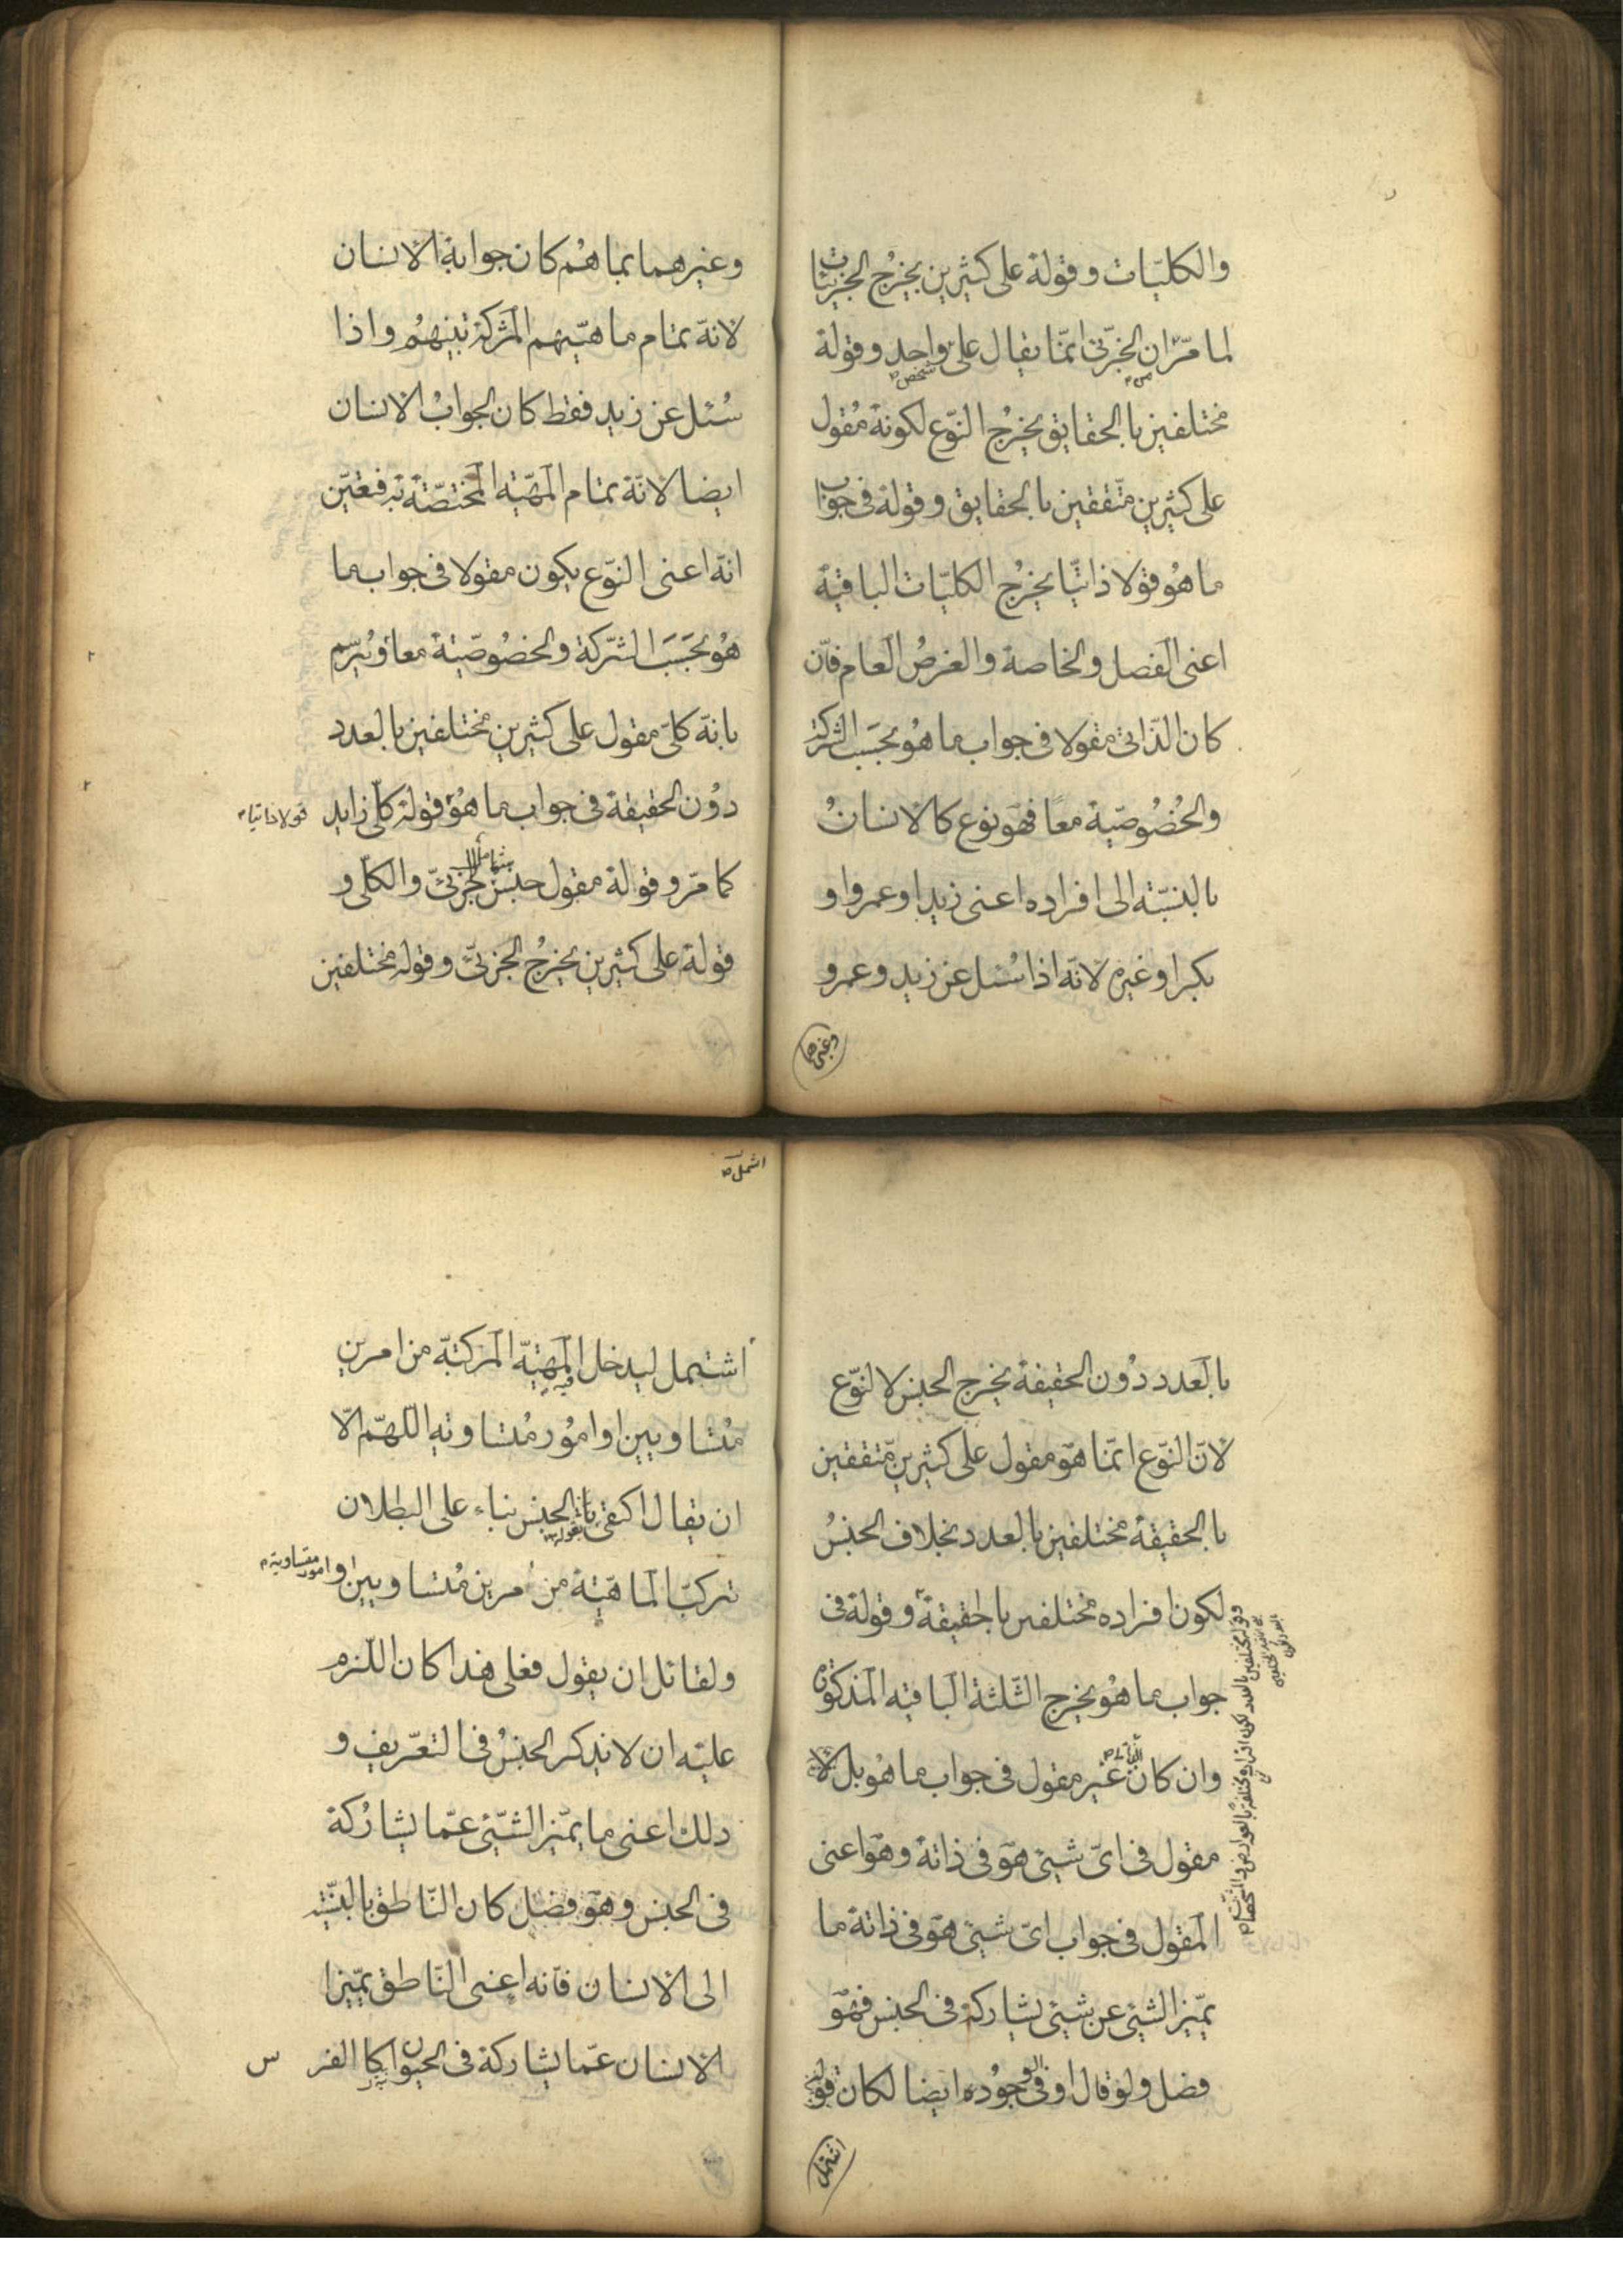 والكليّات وقوله على كثيرين يخرج الجزئيّات
لما مرّ ان الجزئى انّما يقال على واحد وقوله
شخص
مختلفين بالحقايق يخرج النّوع لكونه مقول
على كثيرين متّفقين بالحقايق وقوله فى جواب
ما هو قولا ذاتيّا يخرج الكليّات الباقية
اعنى الفصل والخاصة والعرض العام فان
كان الذّاتى مقولا فى جواب ما هو بحسب الشركة
والخصوصيّة معًا فهو نوع كالانسان
بالنسبة الى افراده اعنى زيدا وعمروا و
بكرا وغيره لانّه اذا سئل عن زيد وعمرو
وغيرهما
وغيرهما بما هم كان جوابه الانسان
لانه تمام ماهيّتهم المشتركة بينهم واذا
سُئل عن زيد فقط كان الجواب الانسان
ايضا لانّه تمام المهيّة المختصّة به فتعيّن
انه اعنى النّوع يكون مقولا فى جواب ما
هُو بحَسَب الشّركة والخصُوصيّة معا ويُرسّم
بانّه كلّى مقول على كثيرين مختلفين بالعدد
دُون الحقيقة فى جواب ما هُو قوله كلّى زايد
قولا ذاتيا
كما مرّ وقوله مقول جنس للجزئىّ والكلّى و
شامل
قوله على كثيرين يخرجُ الجزئىّ وقوله مختلفين
بالعدد دُون الحقيقة يخرج الجنس لا النّوع
لانّ النّوع انّما هو مقول على كثيرين متّفقين
بالحقيقة مختلفين بالعدد بخلاف الجنسُ
لكون افراده مختلفين بالحقيقة وقوله فى
جواب ما هُو يخرج الثّلثة الباقيه المذكورة
وان كان غير مقول فى جواب ما هو بل لا
مقول فى اىّ شيئ هو فى ذاته وهو اعنى
المقول فى جواب اىّ شيئ هو فى ذاته ما
يميّز الشيئ عن شيئ يشاركه فى الجنس فهو
فصل ولو قال او فى الوجُوده ايضا لكان قوله
وقوله مختلفين بالعدد لكون افراده مختلفة بالعوارض والتشخصات
اشتمل
اشمل
اشتمل ليدخل المهيّة المركبّة من امرين
فيه
مُتساويين او امُور مُتساويه اللهمّ الّا
ان يقال اكتفى بالجنس بناء على البطلان
بقوله
تركبّ الماهيّة من أمرين مُتساويين او
امور متساوية
ولقائل ان يقول فعلى هذا كان اللّزم
عليه ان لا يذكر الجنسُ فى التعريف و
ذلك اعنى ما يميّز الشّيئ عمّا يشاركه
فى الجنس وهو فصل كان النّاطق بالنّسبة
الى الانسان فانه اعنى النّاطق يميّز
الانسان عمّا يشاركه فى الحيوان كا الفر
س